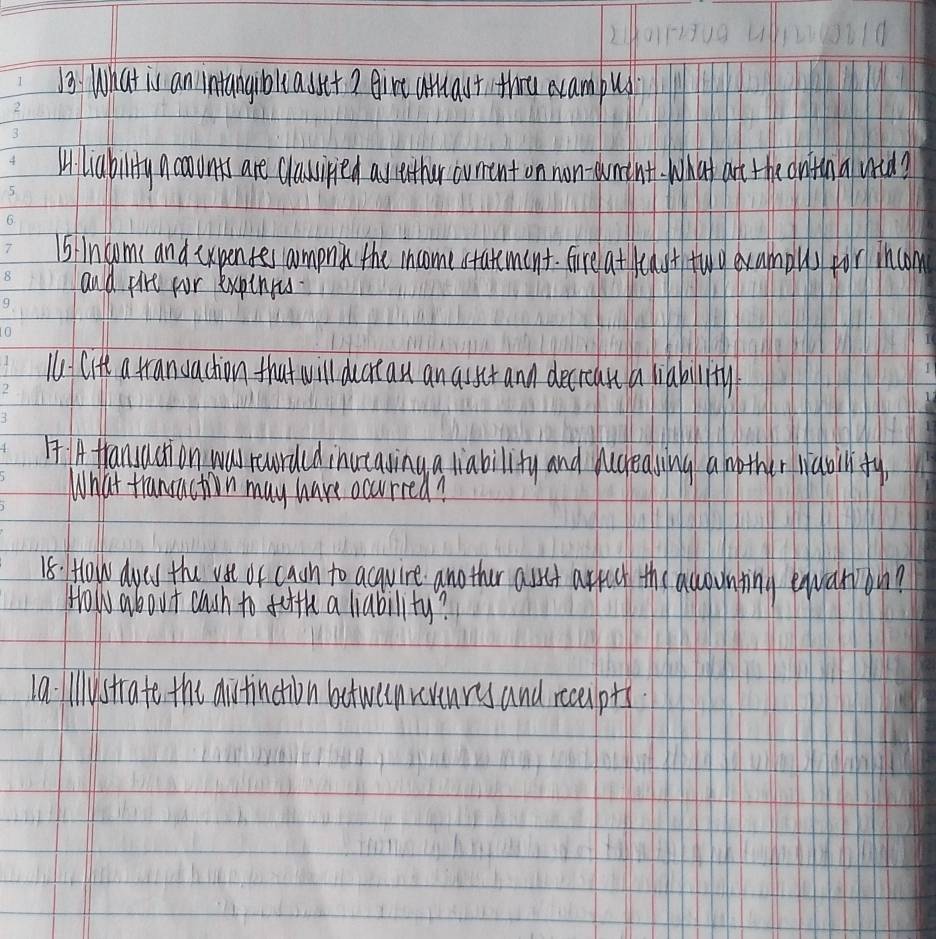 13. What is an intangible asset? Give atleast three examples.
14. Liability accounts are classified as either current on non-current. What are the criteria used?
15. Income and expenses comprise the income statement. Give at least two examples for income
and five for expenses.
16. Cite a transaction that will decrease an asset and decrease a liability.
17. A transaction was recorded increasing a liability and decreasing another liability,
What transaction may have occurred?
18. How does the use of cash to acquire another asset affect the accounting equation?
How about cash to settle a liability?
19. Illustrate the distinction between revenues and receipts.